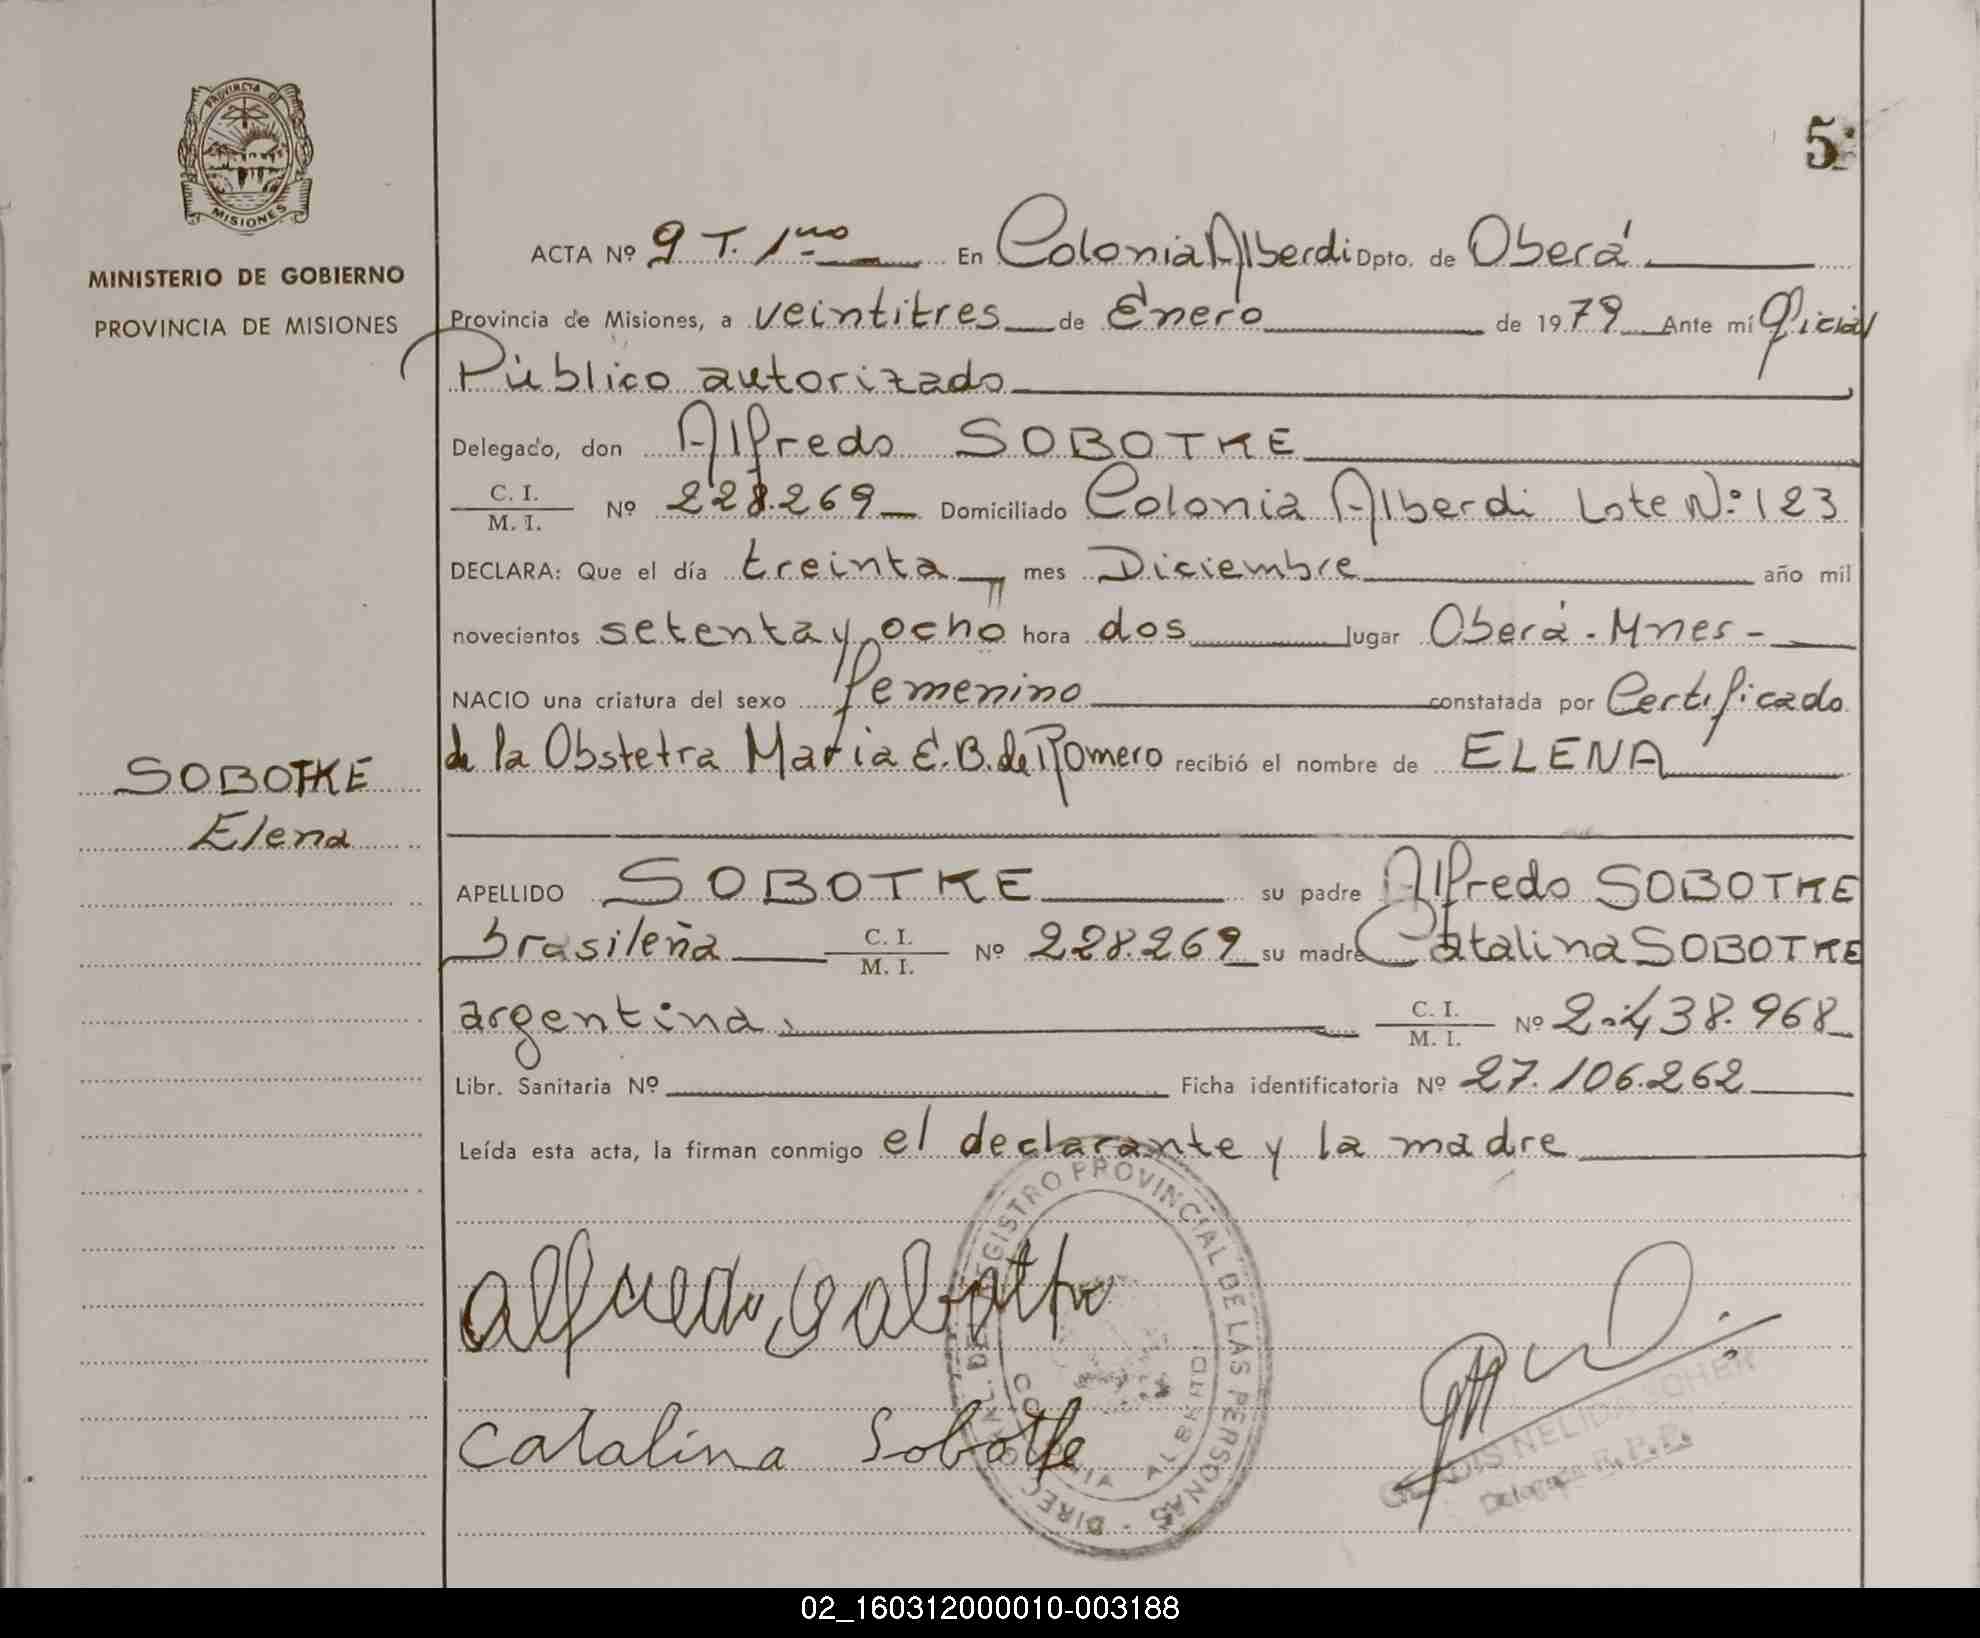 PROVINCIA DE
MISIONES
MINISTERIO DE GOBIERNO
PROVINCIA DE MISIONES
5
ACTA Nº 9 T. 1ro En Colonia Alberdi Dpto. de Oberá
Provincia de Misiones, a veintitres de Enero de 1979 Ante mí Oficial
Público autorizado
Delegado, don Alfredo SOBOTKE
C. I.
M. I. Nº 228.269 Domiciliado Colonia Alberdi Lote Nº 123
DECLARA: Que el día treinta mes Diciembre año mil
novecientos setenta y ocho hora dos lugar Oberá - Mnes -
NACIO una criatura del sexo femenino constatada por Certificado
de la Obstetra María E. B. de Romero recibió el nombre de ELENA
SOBOTKE
Elena
APELLIDO SOBOTKE su padre Alfredo SOBOTKE
brasileña C. I. M. I. Nº 228.269 su madre Catalina SOBOTKE
argentina. C. I. M. I. Nº 2.438.968
Libr. Sanitaria Nº Ficha identificatoria Nº 27.106.262
Leída esta acta, la firman conmigo el declarante y la madre
REGISTRO PROVINCIAL DE LAS PERSONAS - DIREC. GRAL. DEL
COLONIA ALBERDI
Alfredo Sobotke
Catalina Sobotke
NELIDA
Delegada R. P. P.
02_160312000010-003188